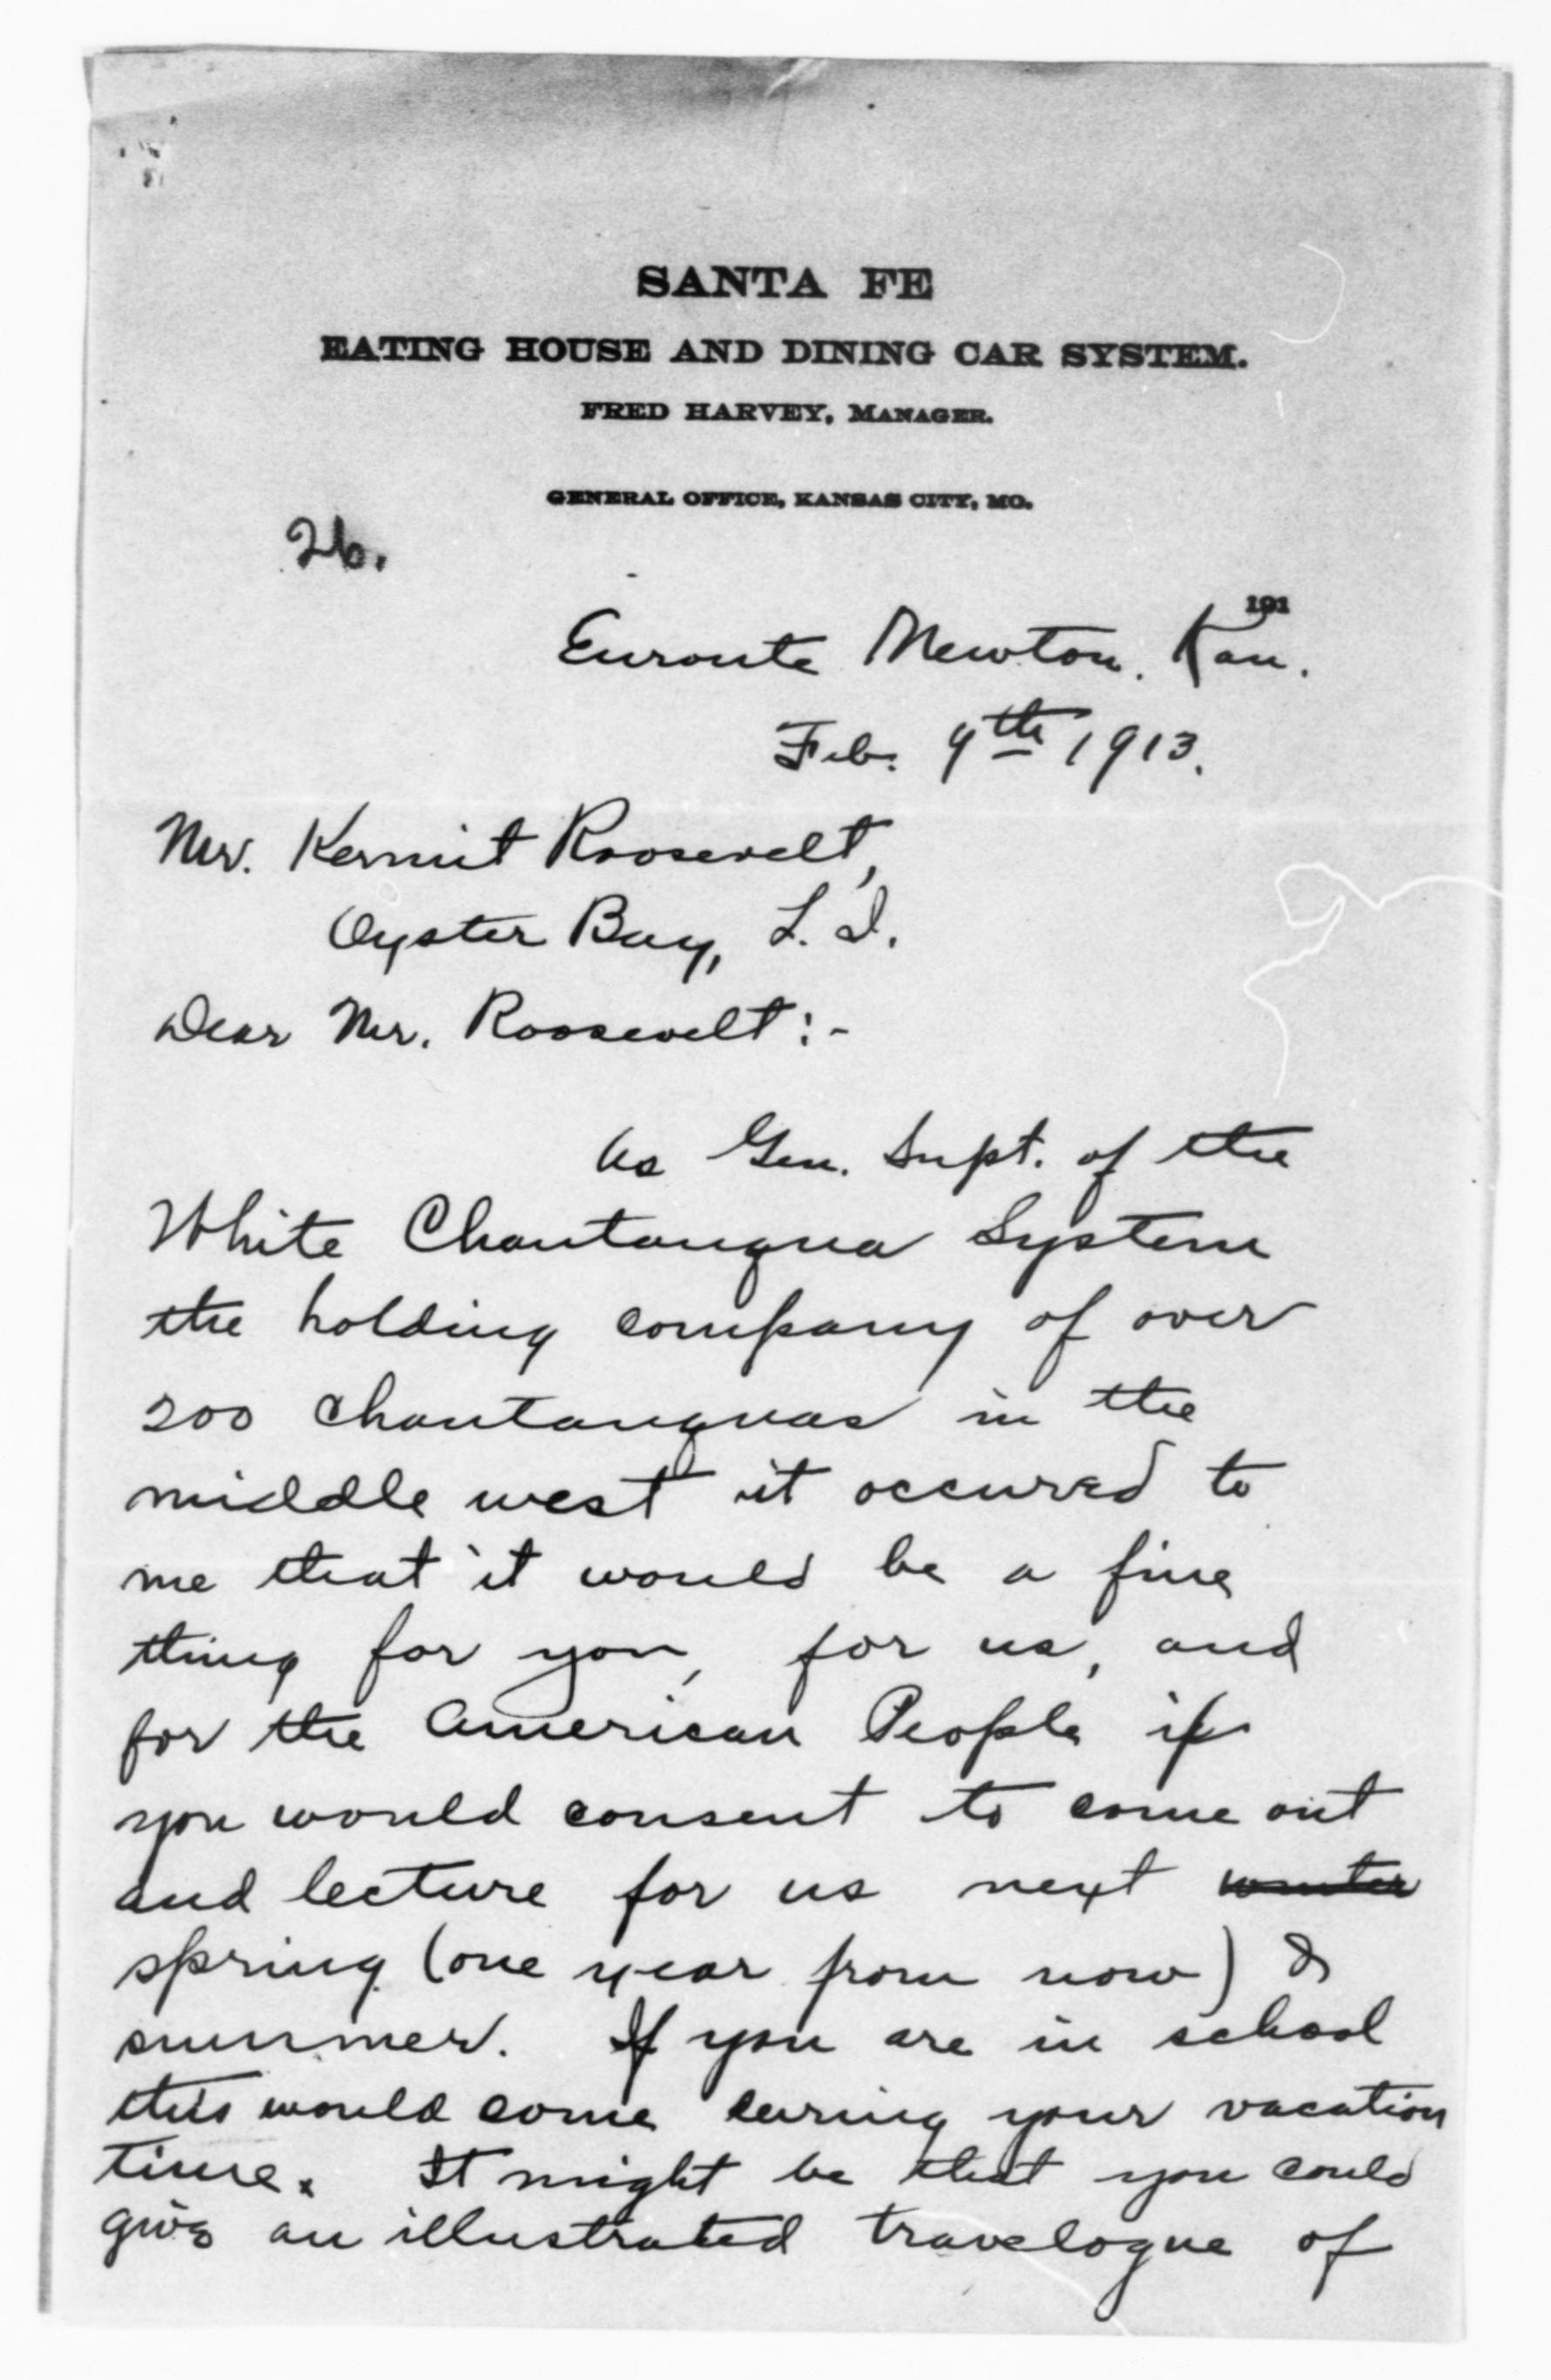 SANTA FE
EATING HOUSE AND DINING CAR SYSTEM.
FRED HARVEY, MANAGER.
GENERAL OFFICE, KANSAS CITY, MO.
26.
191
Enroute Newton. Kan.
Feb. 9th 1913.
Mr. Kermit Roosevelt,
Oyster Bay, L. I.
Dear Mr. Roosevelt:-
As Gen. Supt. of the
White Chautauqua System
the holding company of over
200 chautauquas in the
middle west it occurred to
me that it would be a fine
thing for you, for us, and
for the American People if
you would consent to come out
and lecture for us next winter
spring (one year from now) &
summer. If you are in school
this would come during your vacation
time. It might be that you could
give an illustrated travelogue of